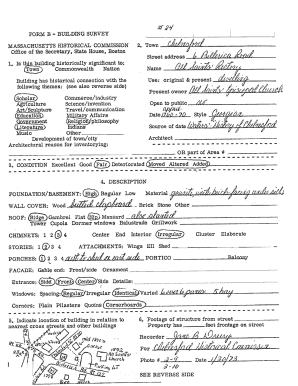 FORM B - BUILDING SURVEY
# 24
MASSACHUSETTS HISTORICAL COMMISSION
Office of the Secretary, State House, Boston
2. Town Chelmsford
Street address 6 Billerica Road
Name All Saints Rectory
Use: original & present dwelling
Present owner All Saints Episcopal Church
Open to public no
Style Georgian
Source of date Waters' History of Chelmsford
Architect
OR part of Area #
1. Is this building historically significant to:
Town Commonwealth Nation
Building has historical connection with the
following themes: (see also reverse side)
Scholar Commerce/industry
Agriculture Science/invention
Art/Sculpture Travel/communication
Education Military Affairs
Government Religion/philosophy
Literature Indians
Music Other
Development of town/city
Architectural reason for inventorying:
3. CONDITION Excellent Good Fair Deteriorated Moved Altered Added
4. DESCRIPTION
FOUNDATION/BASEMENT: High Regular Low Material granite, with brick facing
WALL COVER: Wood clapboard Brick Stone Other
ROOF: Ridge Gambrel Flat Hip Mansard
Tower Cupola Dormer windows Balustrade Grillwork
CHIMNEYS: 1 2 3 4 Center End Interior Irregular Cluster Elaborate
STORIES: 1 2 3 4 ATTACHMENTS: Wings Ell Shed
PORCHES: 1 2 3 4 PORTICO Balcony
FACADE: Gable end: Front/side Ornament
Entrance: Side Front: Center/Side Details:
Windows: Spacing: Regular/Irregular Identical/Varied
Corners: Plain Pilasters Quoins Cornerboards
5. Indicate location of building in relation to
nearest cross streets and other buildings
6. Footage of structure from street
Property has feet frontage on street
Recorder Jane B. Drury
For Chelmsford Historical Commission
Photo # 2-9 Date 1/30/73
3-10
SEE REVERSE SIDE